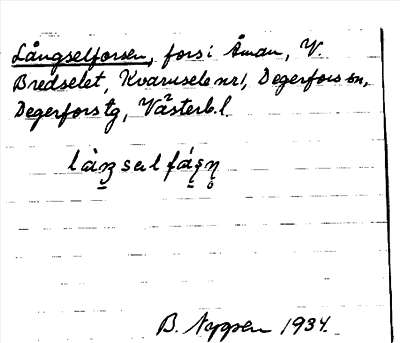 Långselforsen, fors i Åman, V.
Bredselet, Kvarnsele nr 1, Degerfors sn,
Degerfors tg, Västerb. l.
làŋsɐlfáʂn̥
B. Nygren 1934.